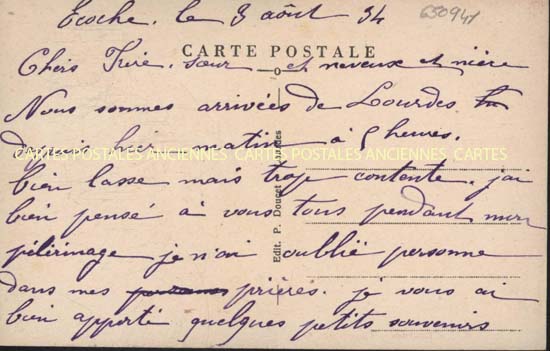 Ecoche, le 3 août 34
650941
CARTE POSTALE
Chers Frère, sœur et neveux et nièce
Nous sommes arrivées de Lourdes
depuis hier matin à 5 heures.
CARTES POSTALES ANCIENNES CARTES POSTALES ANCIENNES CARTES
bien lasse mais trop contente. j'ai
bien pensé a vous tous pendant mon
pélérinage je n'ai oublié personne
dans mes prières. je vous ai
bien apporté quelques petits souvenirs
Edit. P. Doucet Lourdes